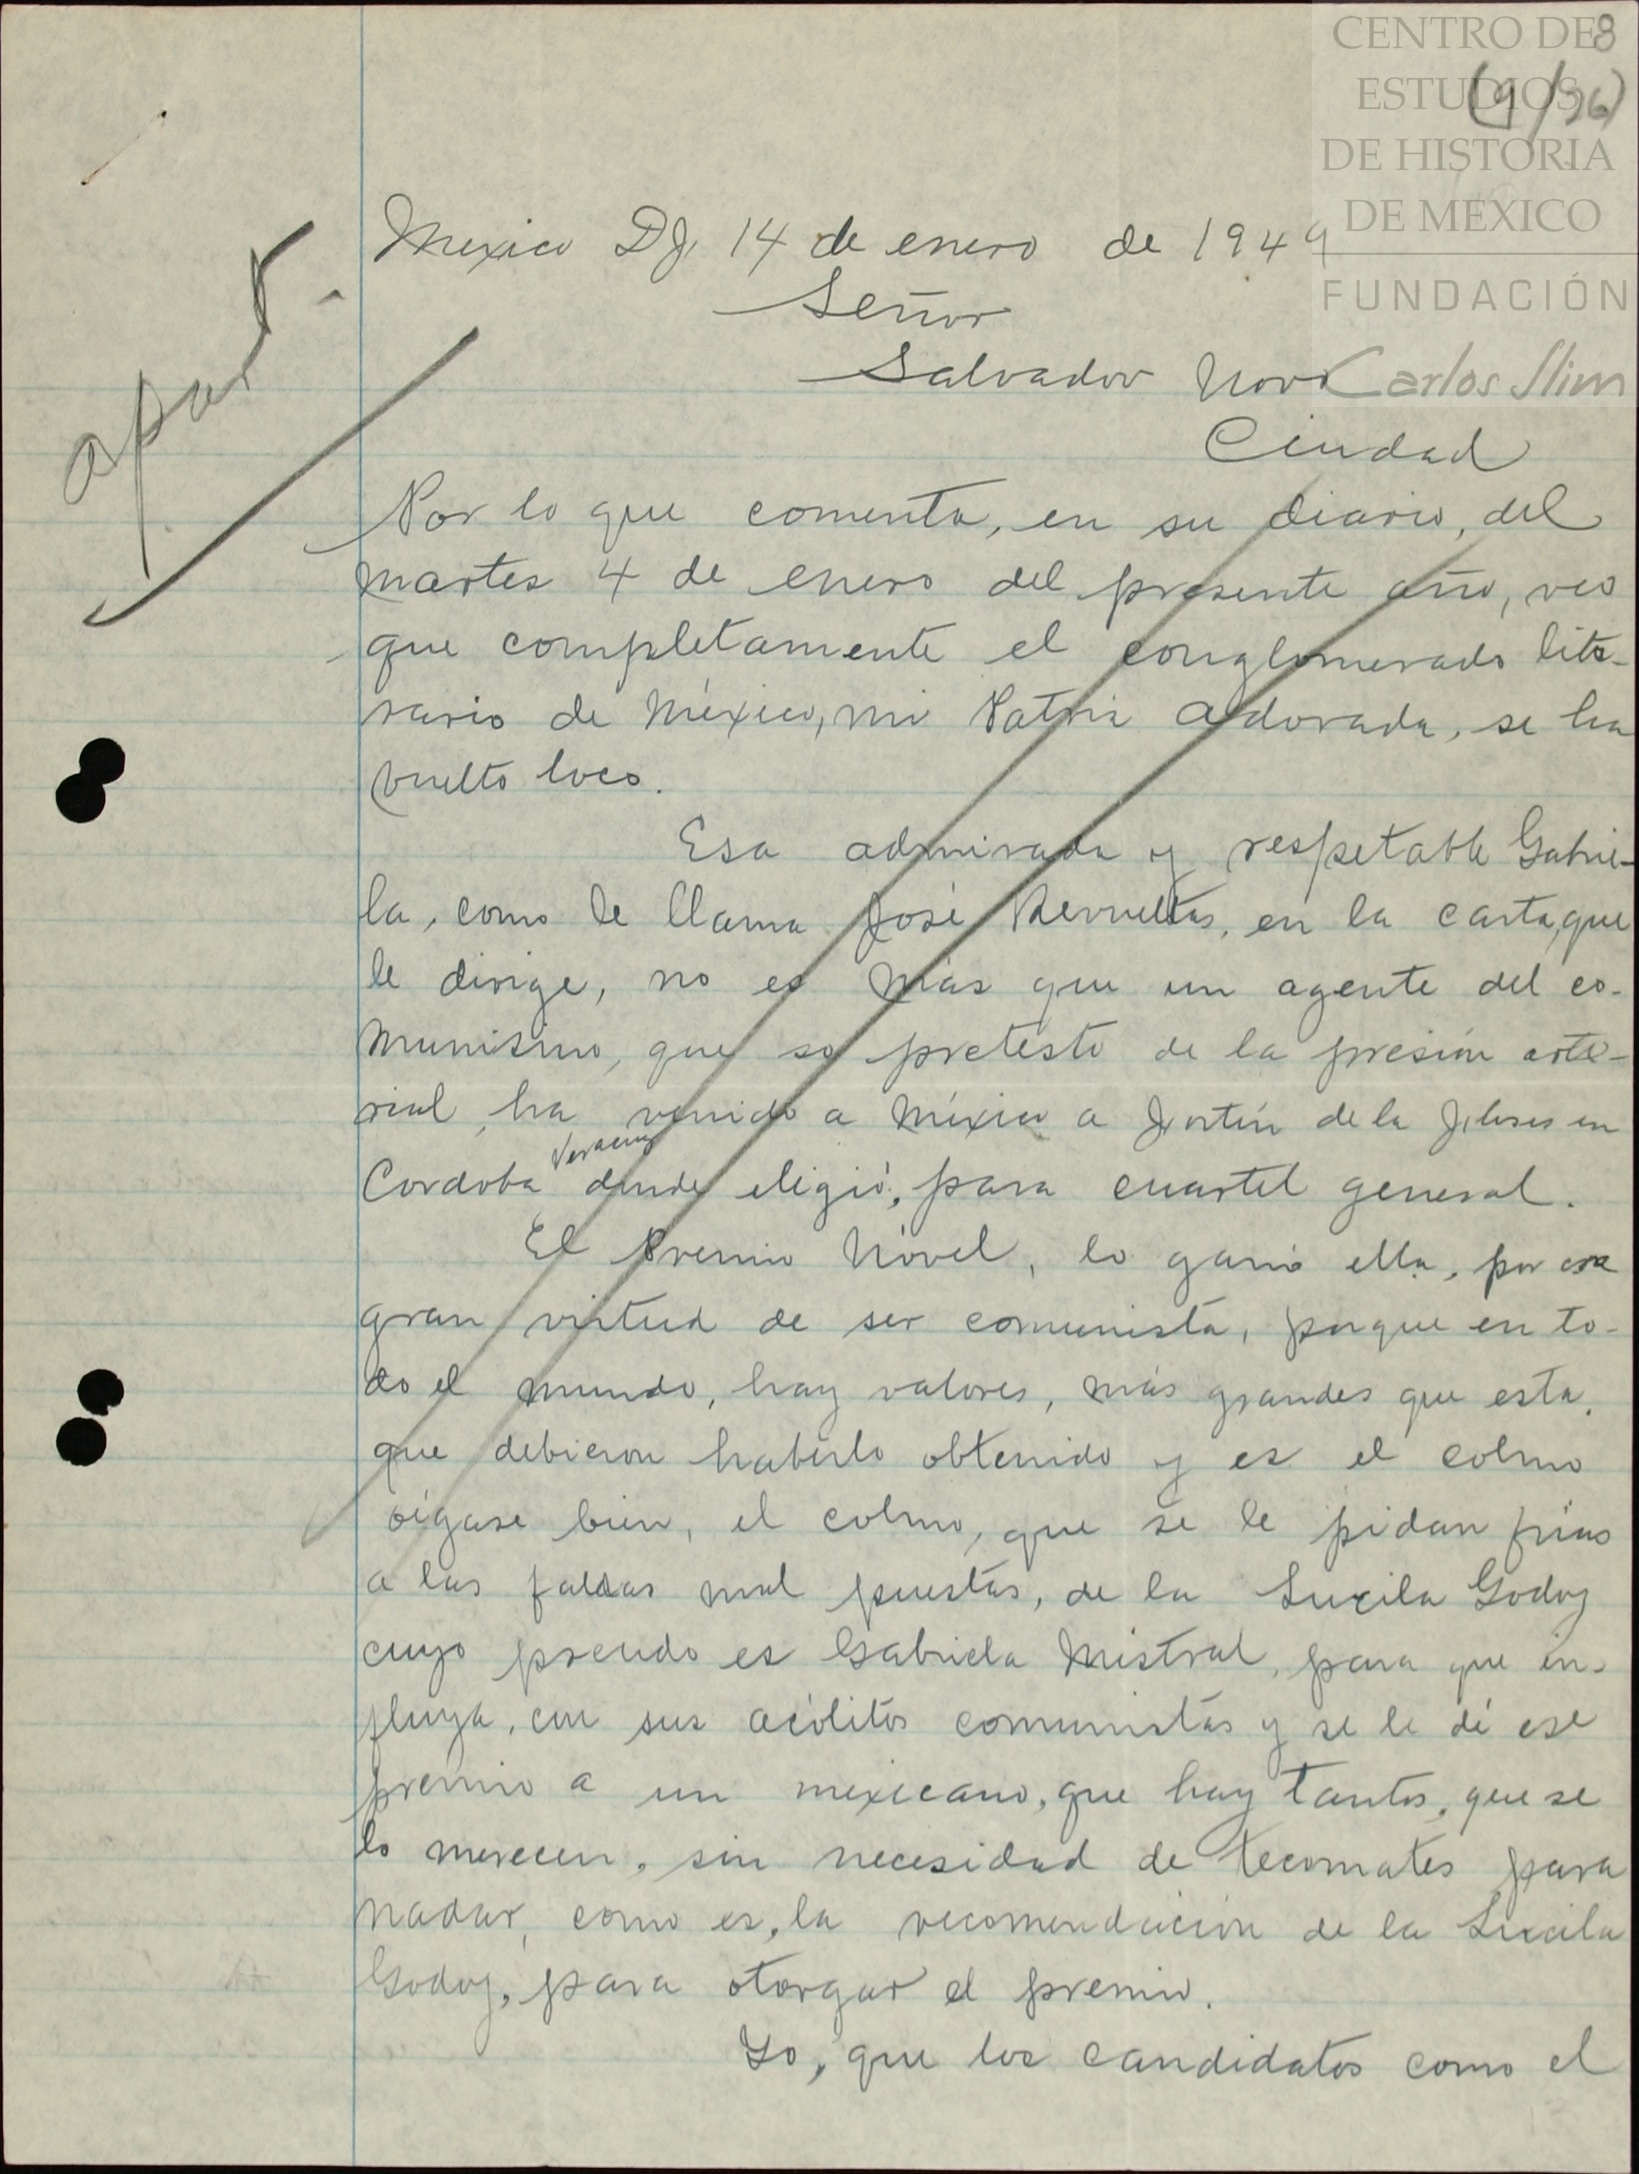 CENTRO DE
8
ESTUDIOS
DE HISTORIA
DE MÉXICO
FUNDACIÓN
Carlos Slim
Mexico D.F. 14 de enero de 1949
Señor
Salvador Novo
Ciudad
Por lo que comenta, en su diario, del
martes 4 de enero del presente año, veo
que completamente el conglomerado lite-
rario de México, mi Patria adorada, se ha
vuelto loco.
Esa admirada y respetable Gabrie-
la, como le llama José Revueltas, en la carta, que
le dirige, no es más que un agente del co-
munismo, que so pretesto de la presión arte-
rial, ha venido a México a Fortín de la Flores en
Veracruz
Cordoba donde eligió, para cuartel general.
El Premio Nóvel, lo ganó ella, por esa
gran virtud de ser comunista, porque en to-
do el mundo, hay valores, más grandes que esta,
que debieron haberlo obtenido y es el colmo
oígase bien, el colmo, que se le pidan frías
a las faldas mal puestas, de la Lucila Godoy
cuyo pseudo es Gabriela Mistral, para que in-
fluya, con sus acólitos comunistas y se le dé ese
premio a un mexicano, que hay tantos, que se
lo merecen, sin necesidad de tecomates para
nadar, como es, la recomendación de la Lucila
Godoy, para otorgar el premio.
Yo, que los candidatos como el